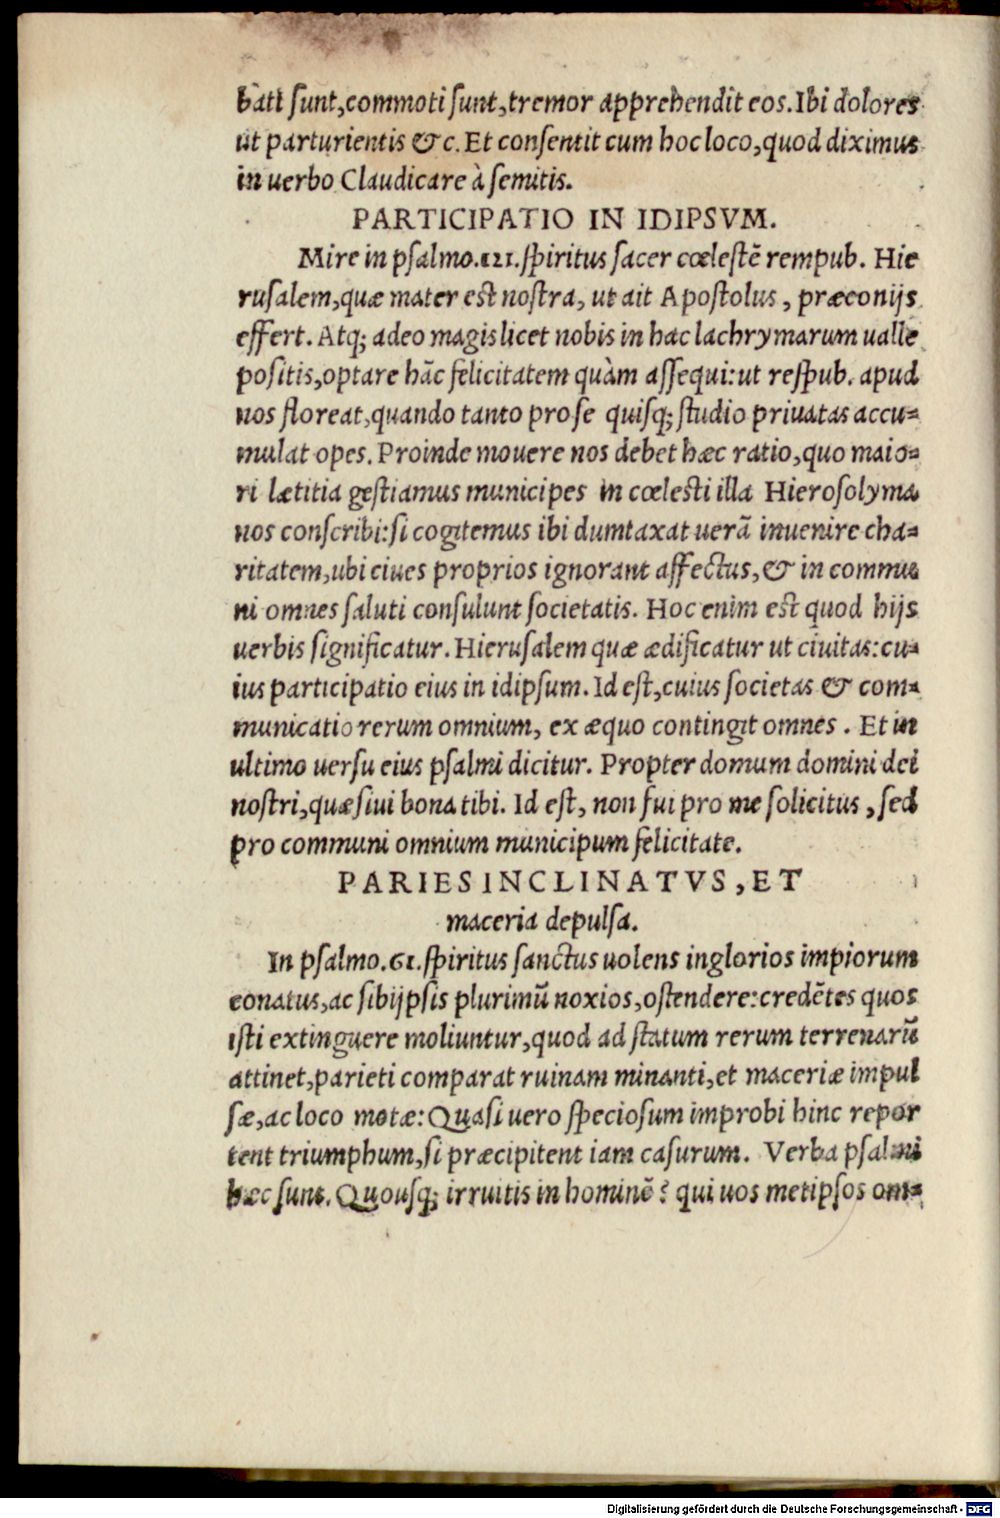 bati sunt,commoti sunt,tremor apprehendit eos.Ibi dolores
ut parturientis &c. Et consentit cum hoc loco,quod diximus
in uerbo Claudicare à semitis.
PARTICIPATIO IN IDIPSVM.
Mire in psalmo.121.spiritus sacer cœlestē rempub. Hie
rusalem,quæ mater est nostra, ut ait Apostolus, præconijs
effert. Atq; adeo magis licet nobis in hac lachrymarum ualle
positis,optare hāc felicitatem quàm assequi:ut respub. apud
nos floreat,quando tanto pro se quisq; studio priuatas accu-
mulat opes. Proinde mouere nos debet hæc ratio,quo maio-
ri lætitia gestiamus municipes in cœlesti illa Hierosolyma
nos conscribi:si cogitemus ibi dumtaxat uerā inuenire cha-
ritatem,ubi ciues proprios ignorant affectus,& in commu
ni omnes saluti consulunt societatis. Hoc enim est quod hijs
uerbis significatur. Hierusalem quæ ædificatur ut ciuitas:cu-
ius participatio eius in idipsum. Id est,cuius societas & com-
municatio rerum omnium, ex æquo contingit omnes. Et in
ultimo uersu eius psalmi dicitur. Propter domum domini dei
nostri,quæsiui bona tibi. Id est, non fui pro me solicitus, sed
pro communi omnium municipum felicitate.
PARIES INCLINATVS, ET
maceria depulsa.
In psalmo.61.spiritus sanctus uolens inglorios impiorum
conatus,ac sibijpsis plurimū noxios,ostendere:credētes quos
isti extinguere moliuntur,quod ad statum rerum terrenarū
attinet,parieti comparat ruinam minanti,et maceriæ impul
sæ,ac loco motæ: Quasi uero speciosum improbi hinc repor
tent triumphum,si præcipitent iam casurum. Verba psalmi
hæc sunt. Quousq; irruitis in hominē? qui uos metipsos om-
Digitalisierung gefördert durch die Deutsche Forschungsgemeinschaft - DFG